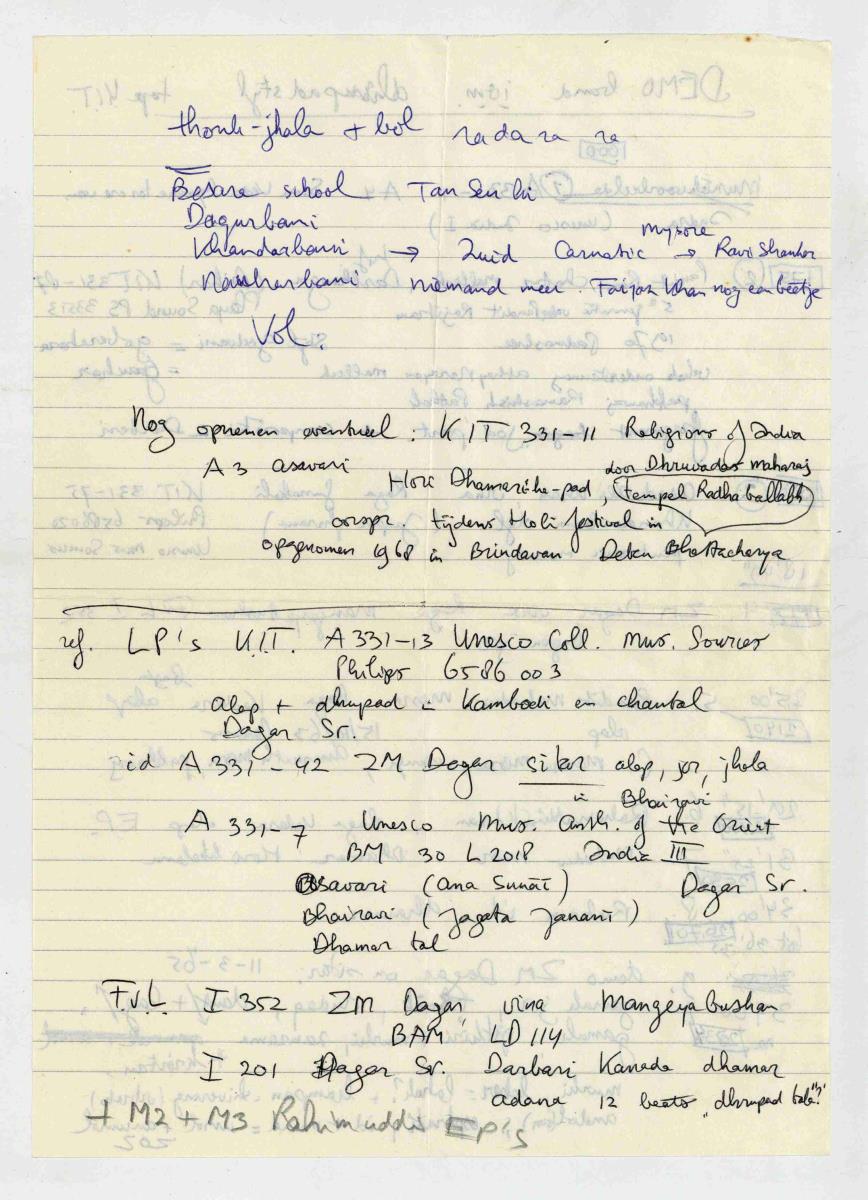 thonk-jhala + bol ra da ra ra
Besare school Tan Sen ki
Dagurbani
Khandarbani → Zuid Carnatic → Ravi Shankar
mysore
Nauharbani niemand meer. Faiyaz Khan nog een beetje
Vol:
Nog opnemen eventueel: KIT 331-11 Religions of India
A3 asavari
door Dhruvadas maharaj
Hori Dhamar: he-pad, (tempel Radha ballabh
oorspr. tijdens Holi festival in
opgenomen 1968 in Brindavan Deben Bhattacharya
ref. LP's K.I.T. A 331-13 Unesco Coll. Mus. Sources
Philips 6586 003
alap + dhrupad in Kambodi en chautal
Dagar Sr.
id A 331-42 ZM Dagar sitar alap, jor, jhala
in Bhairavi
A 331-7 Unesco Mus. Anth. of the Orient
BM 30 L2018 India III
Asavari (Ana Sunāī) Dagar Sr.
Bhairavi (Jagata Jananī)
Dhamar tal
F.v.L. I 352 ZM Dagar vina Mangeyabushan
BAM LD 114
I 201 Dagar Sr. Darbari Kanada dhamar
adana 12 beats „dhrupad tala"?
+ M2 + M3 Rahimuddin EP's